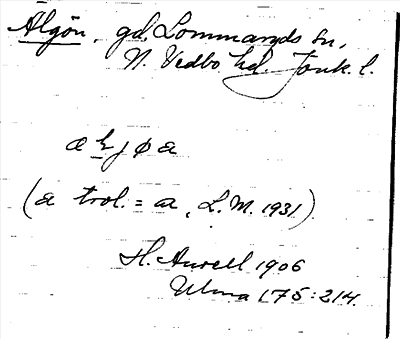 Algön, gd, Lommaryds sn,
N. Vedbo hd. Jönk. l.
a l j ø a
(a trol. = a, L.M. 1931)
H. Aurell 1906
Ulma 175:214.